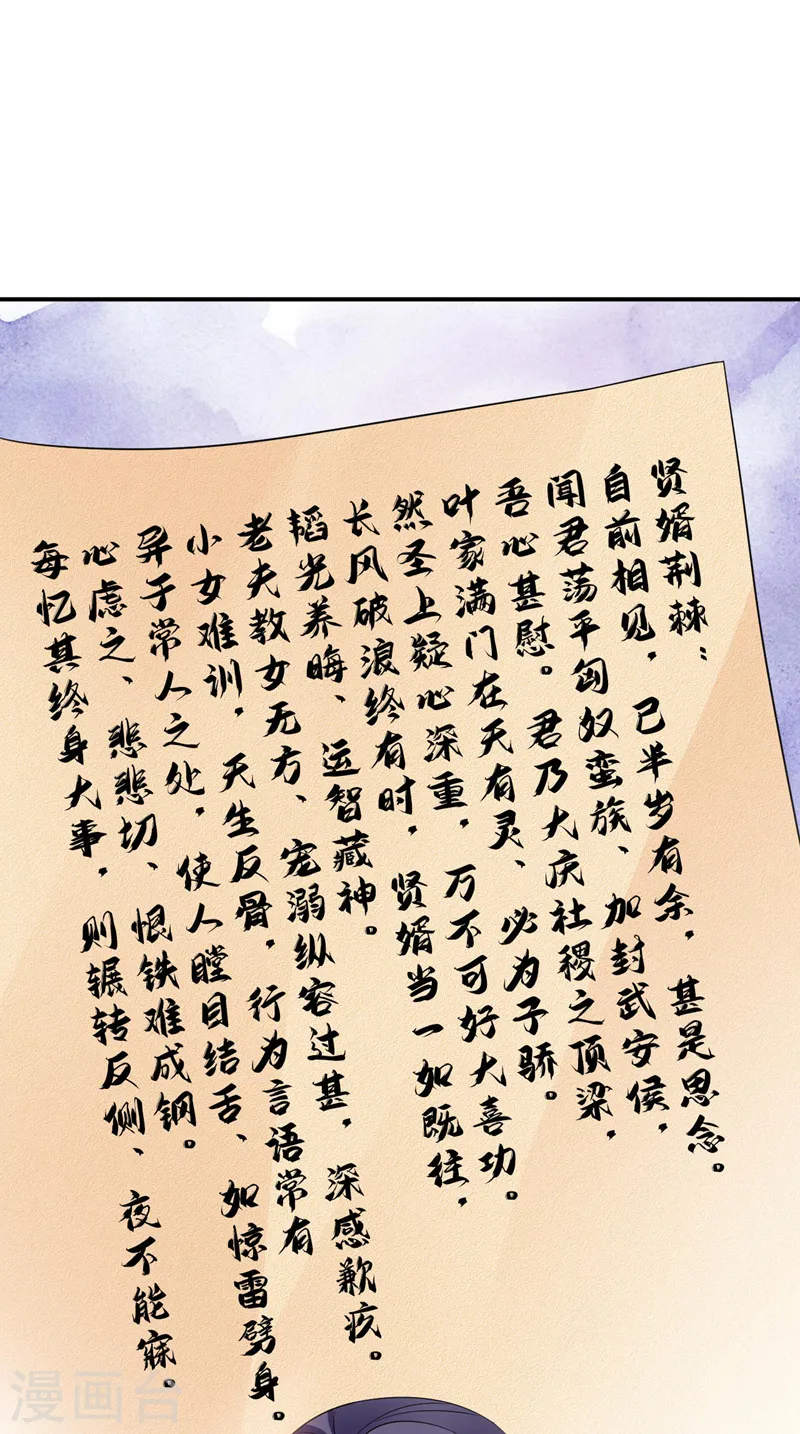 贤婿荆棘：
自前相见，已半岁有余，甚是思念。
闻君荡平匈奴蛮族、加封武安侯，
吾心甚慰。君乃大庆社稷之顶梁，
叶家满门在天有灵、必为子骄。
然圣上疑心深重，万不可好大喜功。
长风破浪终有时，贤婿当一如既往，
韬光养晦、运智藏神。
老夫教女无方、宠溺纵容过甚，深感歉疚。
小女难训，天生反骨，行为言语常有
异于常人之处，使人瞠目结舌、如惊雷劈身。
心虑之、悲悲切、恨铁难成钢。
每忆其终身大事，则辗转反侧、夜不能寐。
漫画台